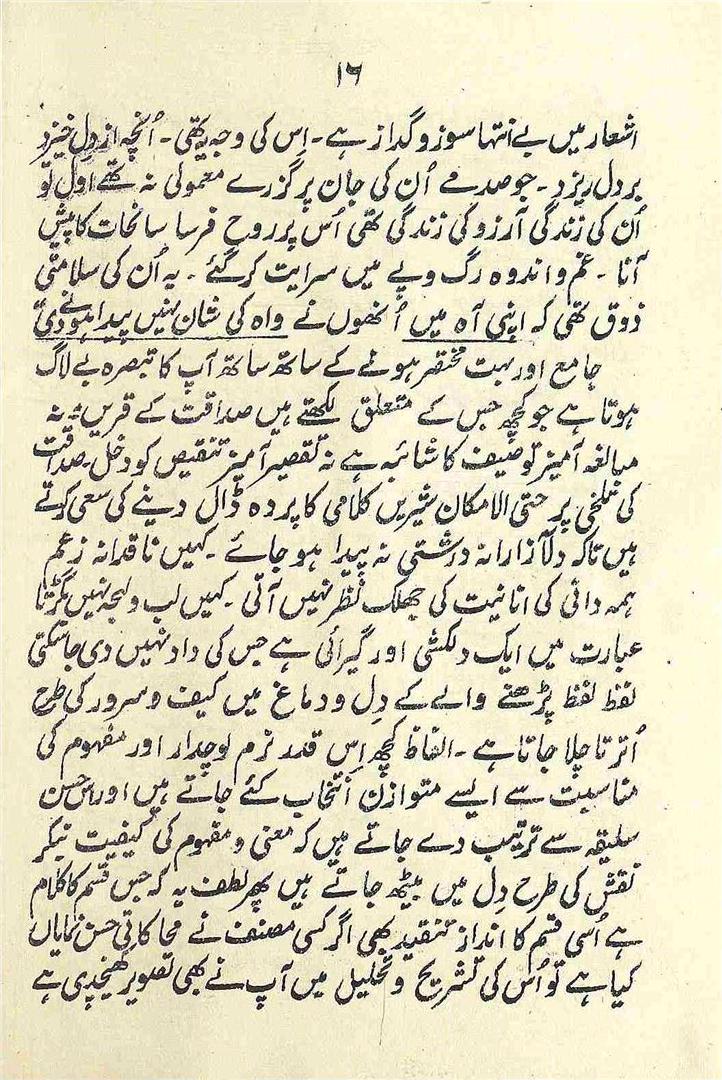 ۱۶
اشعار میں بے انتہا سوز و گداز ہے ۔ اِس کی وجہ یہ تھی ۔ اُنچہ از دِل خیزد
بر دل ریزد ۔ جو صدمے اُن کی جان پر گزرے معمولی نہ تھے اول تو
اُن کی زندگی آرزو کی زندگی تھی اُس پر روح فرسا سانحات کا پیش
آنا ۔ غم و اندوہ رگ و پے میں سرایت کر گئے ۔ یہ اُن کی سلامتی
ذوق تھی کہ اپنی آہ میں اُنھوں نے واہ کی شان نہیں پیدا ہونے دی
جامع اور بہت مختصر ہونے کے ساتھ ساتھ آپ کا تبصرہ بے لاگ
ہوتا ہے جو کچھ جس کے متعلق لکھتے ہیں صداقت کے قریں ۔ نہ
مبالغہ آمیز توصیف کا شائبہ ہے نہ تقصیر آمیز تنقیص کو دخل ۔ صداقت
کی تلخی پر حتی الامکان شیریں کلامی کا پردہ ڈال دینے کی سعی کرتے
ہیں تاکہ دلآزارانہ درشتی نہ پیدا ہو جائے ۔ کہیں ناقدانہ زعم
ہمہ دانی کی انانیت کی جھلک نظر نہیں آتی ۔ کہیں لب و لہجہ نہیں بگڑتا
عبارت میں ایک دلکشی اور گیرائی ہے جس کی داد نہیں دی جا سکتی
لفظ لفظ پڑھنے والے کے دِل و دماغ میں کیف و سرور کی طرح
اُترتا چلا جاتا ہے ۔ الفاظ کچھ اِس قدر نرم لوچدار اور مفہوم کی
مناسبت سے ایسے متوازن انتخاب کئے جاتے ہیں اور اس حسن
سلیقہ سے ترتیب دے جاتے ہیں کہ معنی و مفہوم کی کیفیت بنکر
نقش کی طرح دِل میں بیٹھ جاتے ہیں پھر لطف یہ کہ جس قسم کا کلام
ہے اُسی قسم کا انداز تنقید بھی اگر کسی مصنف نے محاکاتی حسن نمایاں
کیا ہے تو اُس کی تشریح و تحلیل میں آپ نے بھی تصویر کھینچدی ہے